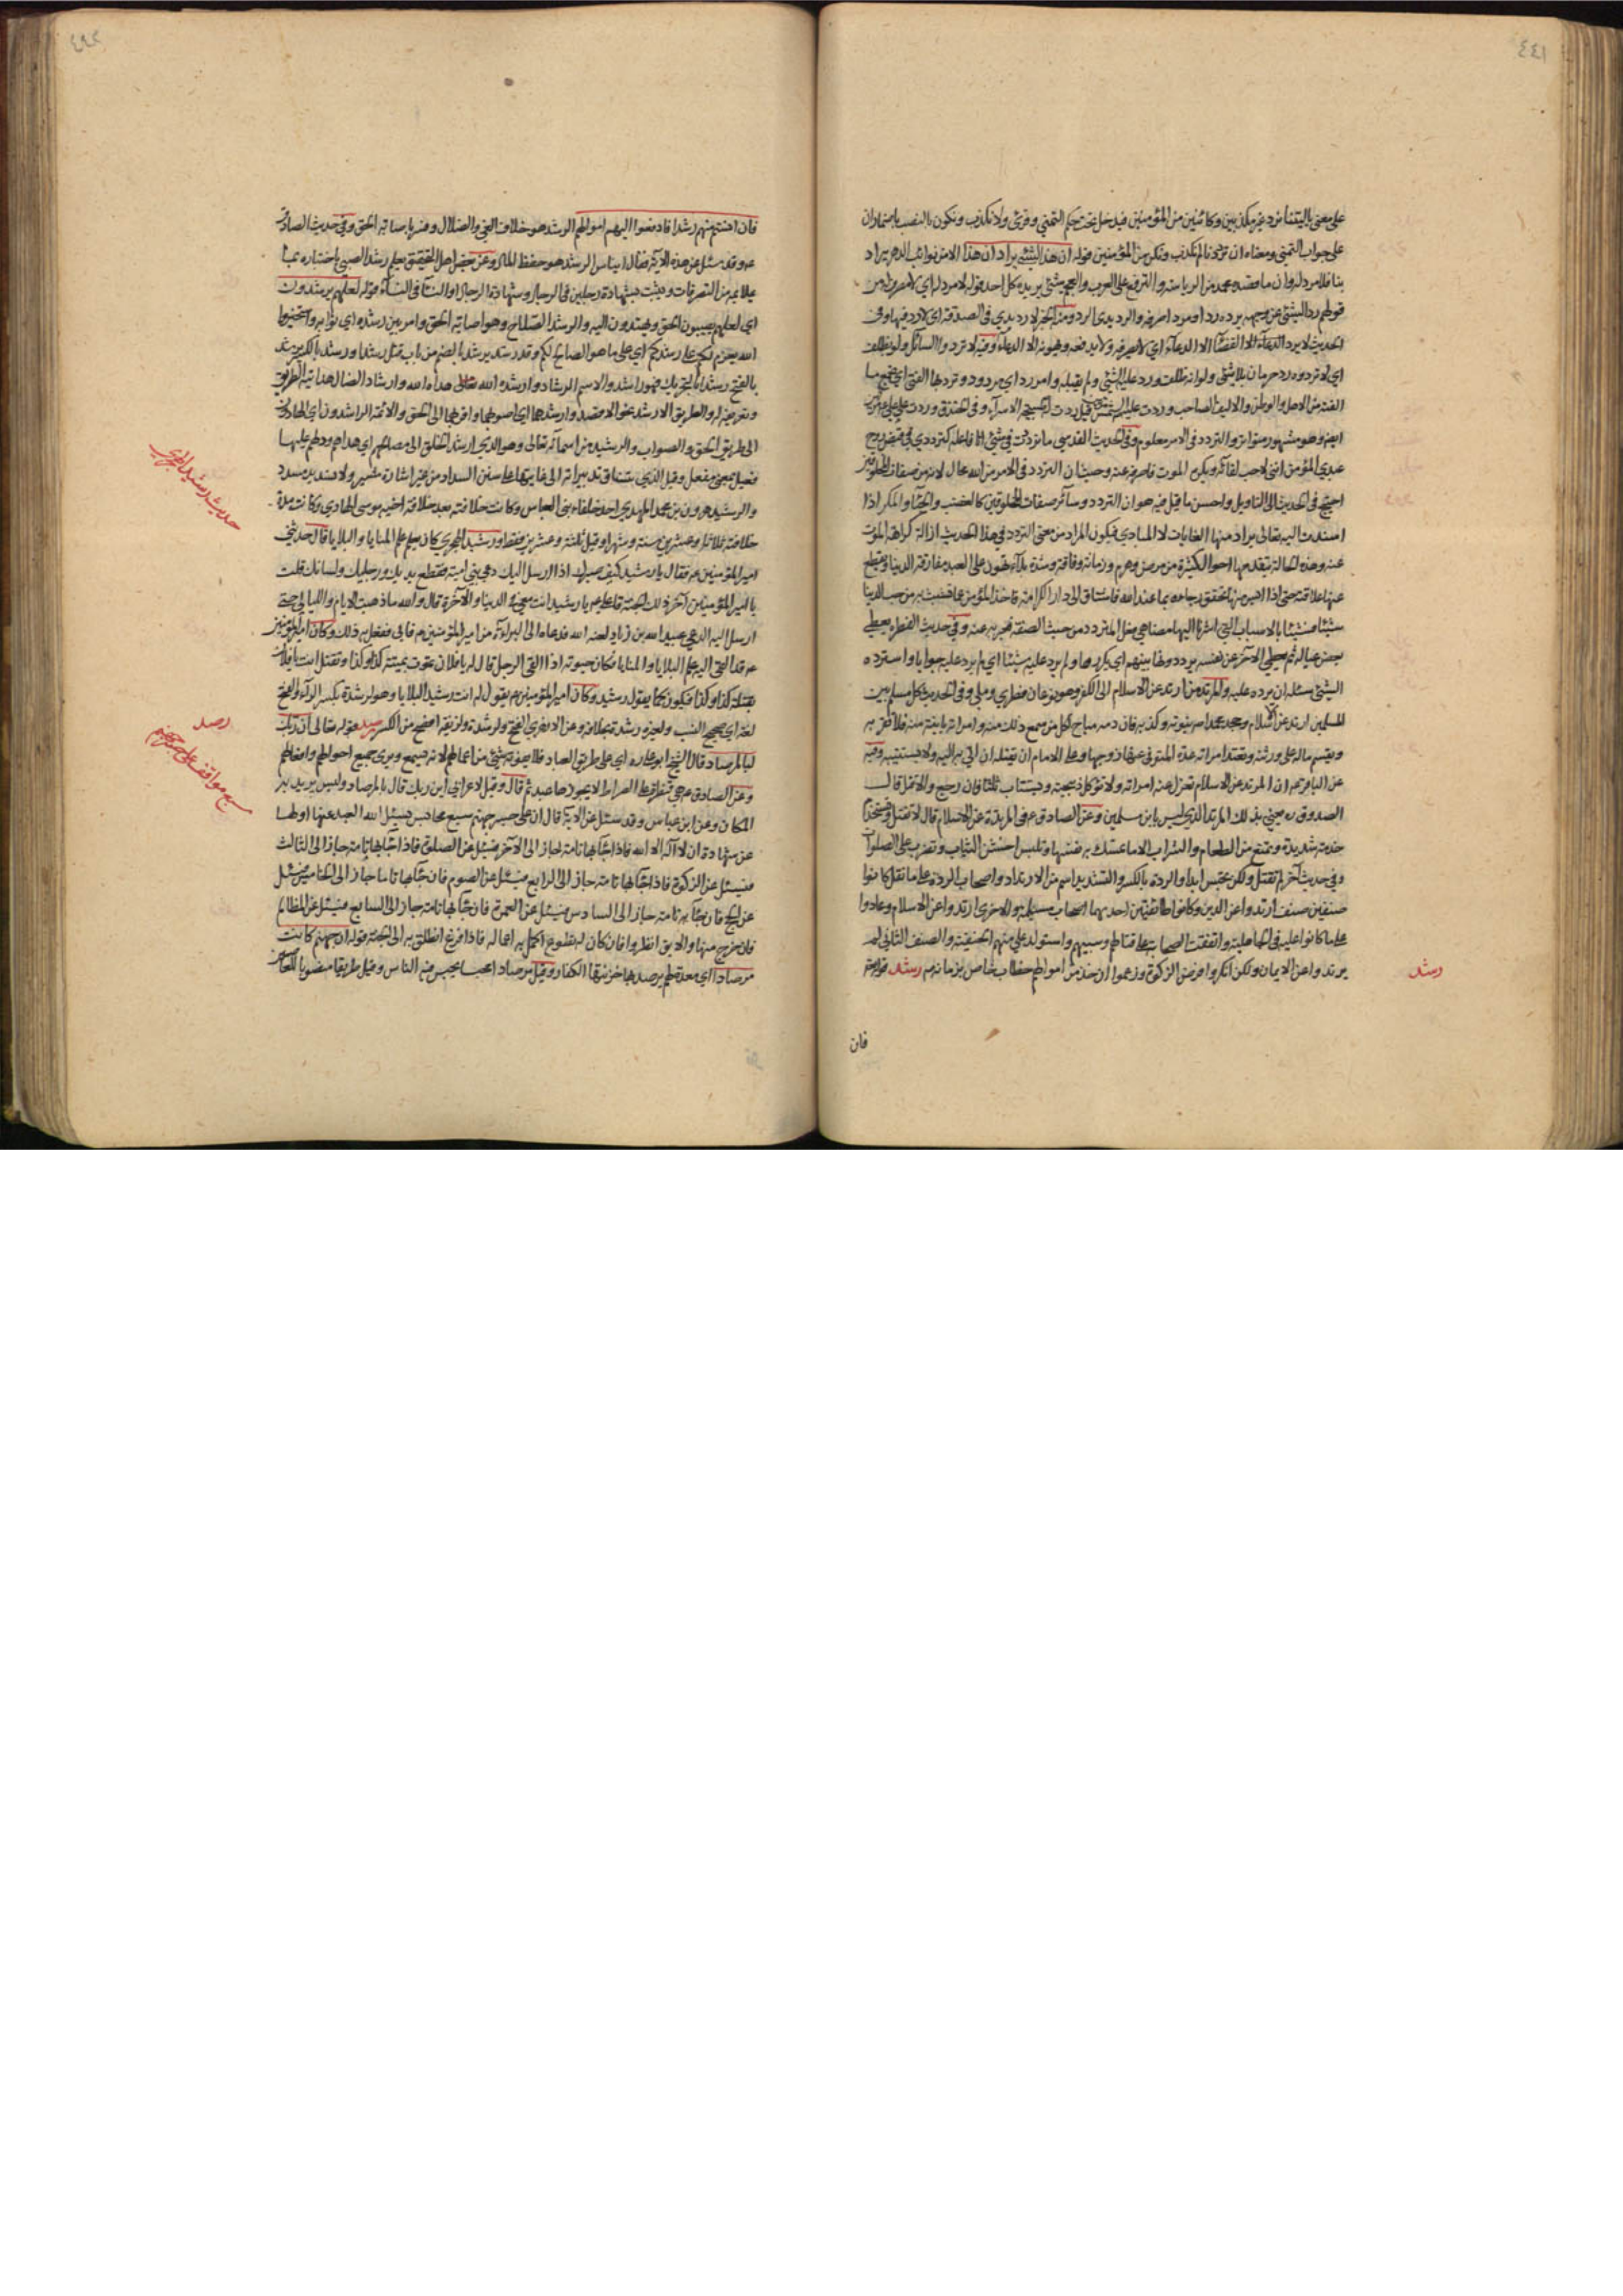 ٤٤١
على معنى يا ليتنا نرد غير مكذبين وكائنين من المؤمنين فيدخل تحت حكم التمني وقرئ ولا نكذب ونكون بالنصب باضمار ان
على جواب التمني ومعناه ان رددنا لم نكذب ونكن من المؤمنين قوله ان هذا لشئ يراد ان هذا الامر من نوائب الدهر يراد
بنا فلا مرد له وان ما قصده محمد من الرياسة والترفع على العرب والعجم شئ يريده كل احد قوله لا مرد له اي لا مصرف من
قولهم رد الشئ عن وجهه يرده ردا ومردا صرفه والرديدى الرد ومنه الخبر لا رديدي في الصدقة اي لا رد فيها وفي
الحديث لا يرد القضاء الا الدعاء اي لا يصرفه ولا يدفعه ويهونه الا الدعاء وفيه لا تردوا السائل ولو بظلف
اي لا تردوه رد حرمان بلا شئ ولو انه ظلف ورد عليه الشئ ولم يقبله وامر رد اي مردود
ايضا وهو مشهور متواتر والتردد في الامر معلوم وفي الحديث القدسي ما ترددت في شئ انا فاعله كترددي في قبض روح
عبدي المؤمن انني لاحب لقاءه ويكره الموت فاصرفه عنه وحيث ان التردد في الامر من الله محال لانه من صفات المخلوقين
احتيج في الحديث الى التاويل واحسن ما قيل فيه هو ان التردد وسائر صفات المخلوقين كالغضب والحياء والمكر اذا
اسندت اليه تعالى يراد منها الغايات لا المبادي فيكون المراد من معنى التردد في هذا الحديث ازالة كراهة الموت
عنه وهذه الحالة يتقدمها احوال كثيرة من مرض وهرم وزمانة وفاقة وشدة بلاء تهون على العبد مفارقة الدنيا ويقطع
عنها علاقته حتى اذا ايس منها تحقق رجاءه بما عند الله فاشتاق الى دار الكرامة فاخذ المؤمن عما تشبث به من حب الدنيا
شيئا فشيئا بالاسباب التي اشرنا اليها مضاهي فعل المتردد من حيث الصفة فعبر به عنه وفي حديث الفطرة يعطي
بعض عياله ثم يعطي الاخر عن نفسه يرددونها بينهم اي يكررونها ولم يرد عليه شيئا اي لم يرد عليه جوابا واسترده
الشئ سئله ان يرده عليه والمرتد من ارتد عن الاسلام الى الكفر وهو نوعان فطري وملي وفي الحديث كل مسلم بين
المسلمين ارتد عن الاسلام وجحد محمدا ص نبوته وكذبه فان دمه مباح لكل من سمع ذلك منه وامراته باينة منه فلا تقربه
ويقسم ماله على ورثته وتعتد امراته عدة المتوفى عنها زوجها وعلى الامام ان يقتله ان اتي به اليه ولا يستتيبه وفيه
عن الباقر ع ان المرتد عن الاسلام تعزل عنه امراته ولا تؤكل ذبيحته ويستتاب ثلثا فان رجع والا قتل قال
الصدوق ره يعني بذلك المرتد الذي ليس بابن مسلمين وعن الصادق ع في المرتدة عن الاسلام قال لا تقتل وتستخدم
خدمة شديدة وتمنع من الطعام والشراب الا ما تمسك به نفسها وتلبس اخشن الثياب وتضرب على الصلوات
وفي حديث آخر لم تقتل ولكن تحبس ابدا والردة بالكسر والتشديد اسم من الارتداد واصحاب الردة على ما نقل كانوا
صنفين صنف ارتدوا عن الدين وكانوا طائفتين احديهما اصحاب مسيلمة والاخرى ارتدوا عن الاسلام وعادوا
على ما كانوا عليه في الجاهلية واتفقت الصحابة على قتالهم وسبيهم واستولد علي منهم الحنفية والصنف الثاني لم
يرتدوا عن الايمان ولكن انكروا فرض الزكوة وزعموا ان خذ من اموالهم خطاب خاص بزمانه ص رشد قوله تع
رشد
فان
٤٤٢
فان انستم منهم رشدا فادفعوا اليهم اموالهم الرشد هو خلاف الغي والضلال وفسر باصابة الحق وفي حديث الصادق
ع وقد سئل عن هذه الآية فقال ايناس الرشد هو حفظ المال وعن بعض اهل التحقيق يعلم رشد الصبي باختباره بما
يلائمه من التصرفات ويثبت بشهادة رجلين في الرجال وشهادة الرجال او النساء في النساء قوله لعلهم يرشدون
اي لعلهم يصيبون الحق ويهتدون اليه والرشد الصلاح وهو اصابة الحق وامر بين رشده اي صوابه واستخيروا
الله يعزم لكم على رشدكم اي على ما هو الصالح لكم وقد رشد يرشد بالضم من باب قتل رشدا ورشد بالكسر يرشد
بالفتح رشدا بالتحريك فهو راشد والاسم الرشاد وارشده الله تعالى هداه الله وارشاد الضال هدايته الطريق
وتعريفه له والطريق الارشد نحو الاقصد وارشدهما اي اصوبهما واقربهما الى الحق والائمة الراشدون اي الهادون
الى طريق الحق والصواب والرشيد من اسمائه تعالى وهو الذي ارشد الخلق الى مصالحهم اي هداهم ودلهم عليها
فعيل بمعنى مفعل وقيل الذي ينساق تدبيراته الى غاياتها على سنن السداد من غير اشارة مشير ولا تسديد مسدد
والرشيد هرون بن محمد المهدي احد خلفاء بني العباس وكانت خلافته بعد خلافة اخيه موسى الهادي وكانت مدة
خلافته ثلاثا وعشرين سنة وشهرا وقيل ثلثة وعشرين فقط ورشيد الهجري كان يعلم علم المنايا والبلايا قال حدثني
امير المؤمنين ع فقال يا رشيد كيف صبرك اذا ارسل اليك دعي بني امية فقطع يديك ورجليك ولسانك قلت
يا امير المؤمنين آخر ذلك الجنة قال علي ع يا رشيد انت معي في الدنيا والآخرة قال والله ما ذهبت الايام والليالي حتى
ارسل اليه الدعي عبيد الله بن زياد لعنه الله فدعاه الى البراءة من امير المؤمنين ع فابى ففعل به ذلك وكان امير المؤمنين
ع قد القى اليه علم البلايا والمنايا فكان حيوته اذا القى الرجل قال له يا فلان تموت بميتة كذا وكذا وتقتل انت يا فلان
بقتلة كذا وكذا فيكون كما يقول رشيد وكان امير المؤمنين ع يقول له انت رشيد البلايا وهو لرشدة بكسر الراء والفتح
لغة اي صحيح النسب ولغيره رشدة بخلافه وعن الازهري الفتح في لرشدة ولزنية افصح من الكسر رصد قوله تعالى ان ربك
لبالمرصاد قال الشيخ ابو علي ره اي على طريق العباد فلا يفوته شئ من اعمالهم لانه يسمع ويرى جميع احوالهم وافعالهم
وعن الصادق ع هي قنطرة على الصراط لا يجوزها عبد ثم قال وقيل لاعرابي اين ربك قال بالمرصاد وليس يريد به
المكان وعن ابن عباس وقد سئل عن الآية قال ان على جسر جهنم سبع محابس يسئل الله العبد عنها اولها
عن شهادة ان لا اله الا الله فاذا جاء بها تامة جاز الى الآخر فيسئل عن الصلوة فاذا جاء بها تامة جاز الى الثالث
فيسئل عن الزكوة فاذا جاء بها تامة جاز الى الرابع فيسئل عن الصوم فان جاء بها تاما جاز الى الخامس فيسئل
عن الحج فان جاء به تامة جاز الى السادس فيسئل عن العمرة فان جاء بها تامة جاز الى السابع فيسئل عن المظالم
فان خرج منها والا يق انظروا فان كان له تطوع اكمل به اعماله فاذا فرغ انطلق به الى الجنة قوله ان جهنم كانت
مرصادا اي معدة لهم يرصد بها خزنتها الكفار وقيل مرصادا محبسا يحبس فيه الناس وقيل طريقا منصوبا للعاصين
حديث رشيد الهجري
رصد
سبع مواقف على جسر جهنم